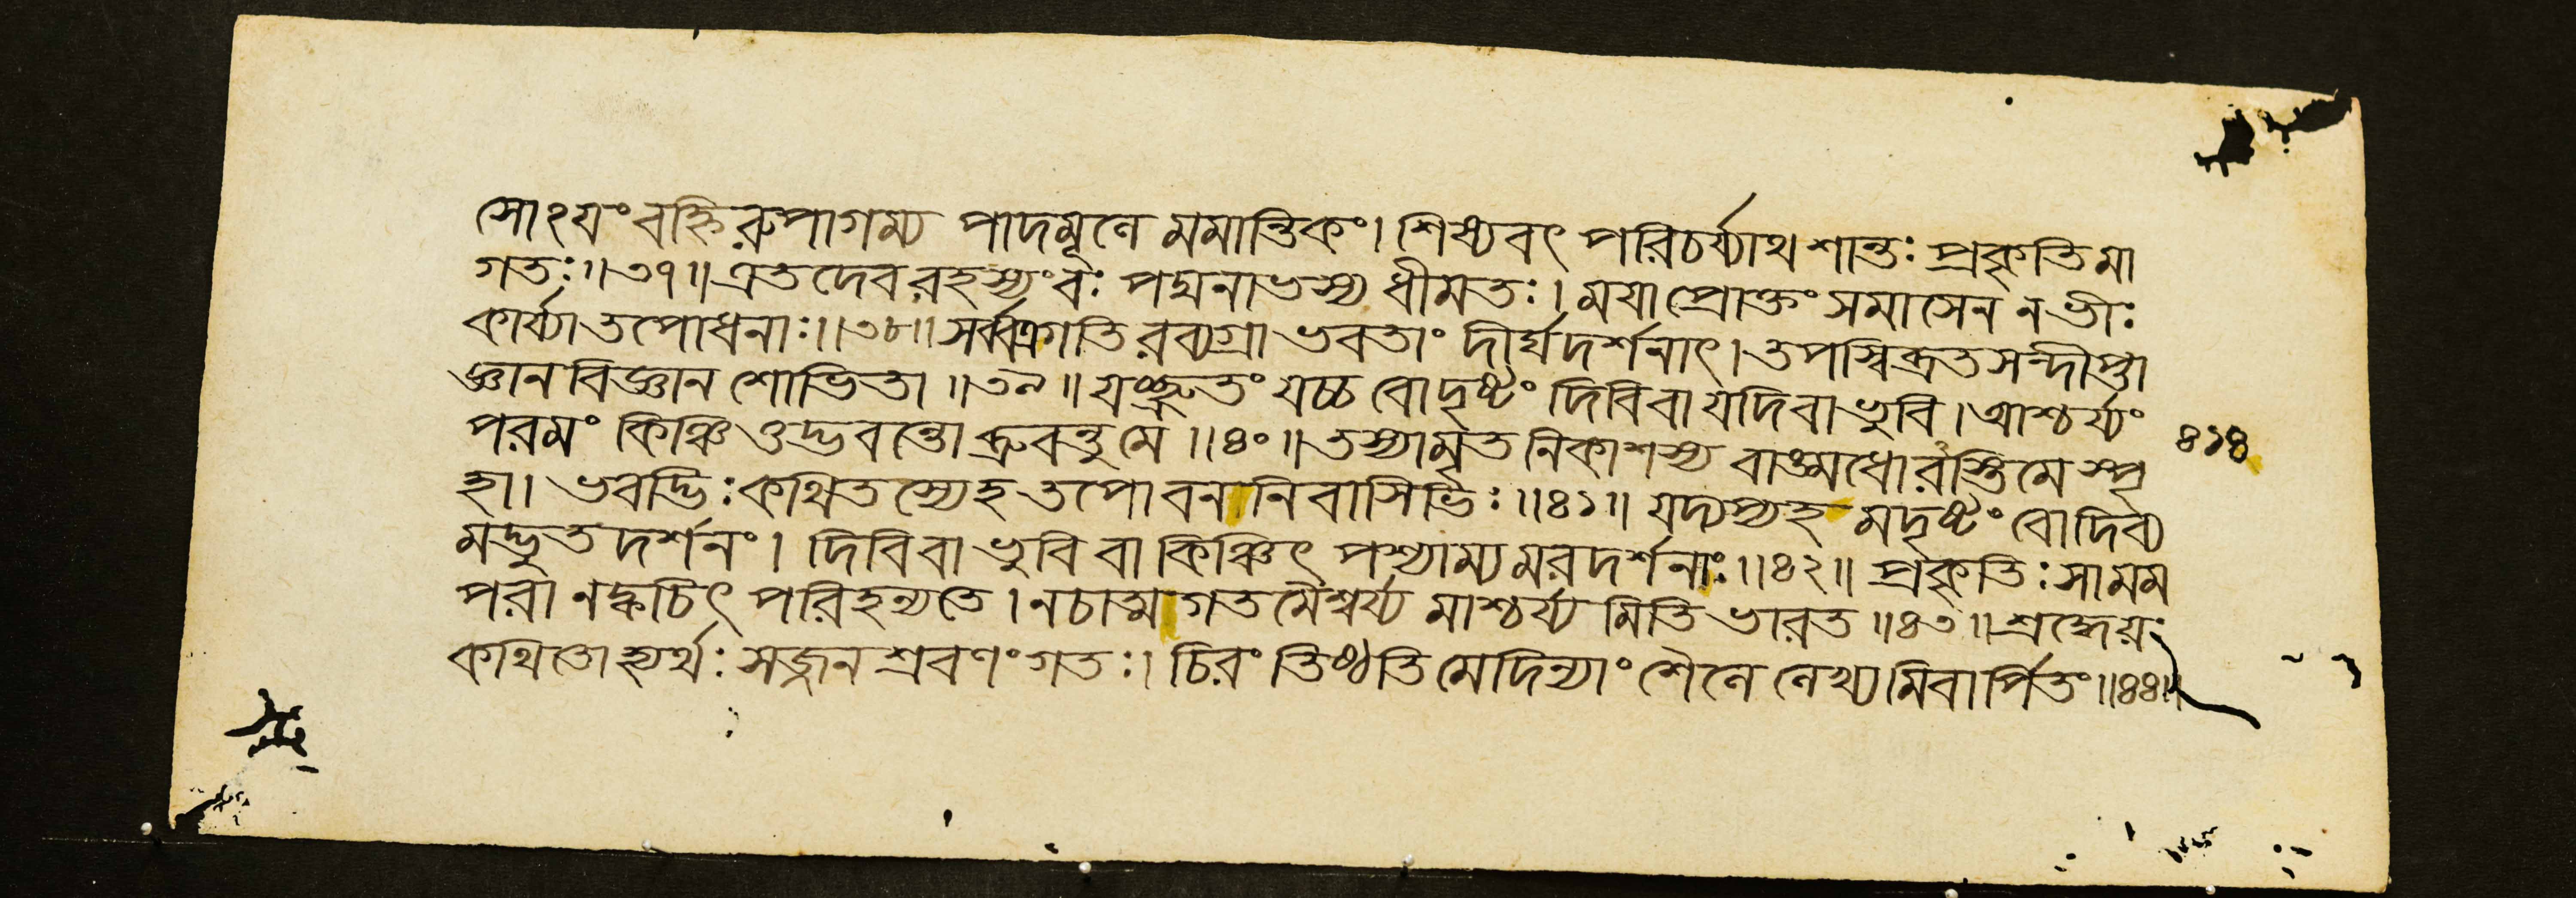 সোঽয়ং বহ্নিরুপাগম্য পাদমূলে মমান্তিকং। শিষ্যবৎ পরিচর্য্যাথ শান্তঃ প্রকৃতিমা
গতঃ॥৩৭॥ এতদেব রহস্যং বঃ পদ্মনাভস্য ধীমতঃ। ময়া প্রোক্তং সমাসেন ন ভীঃ
কার্য্যা তপোধনাঃ॥৩৮॥ সর্ব্বত্রগতিরব্যগ্রা ভবতাং দীর্ঘদর্শনাৎ। তপস্বিব্রতসন্দীপ্তা
জ্ঞানবিজ্ঞান শোভিতা॥৩৯॥ যচ্ছ্রুতং যচ্চ বো দৃষ্টং দিবি বা যদি বা ভুবি। আশ্চর্য্যং
পরমং কিঞ্চি ত্তদ্ভবন্তো ব্রুবন্তু মে॥৪০॥ তস্যামৃতনিকাশস্য বাঙ্মধোরস্তি মে স্পৃ
হা। ভবদ্ভিঃ কথিতস্যেহ তপোবননিবাসিভিঃ॥৪১॥ যদ্যপ্যহ মদৃষ্টং বো দিব্য
মদ্ভুতদর্শনং। দিবি বা ভুবি বা কিঞ্চিৎ পশ্যাম্যমরদর্শনাঃ॥৪২॥ প্রকৃতিঃ সা মম
পরা ন ক্বচিৎ পরিহন্যতে। ন চাত্মগতমৈশ্বর্য্য মাশ্চর্য্য মিতি ভারত॥৪৩॥ শ্রদ্ধেয়ঃ
কথিতো হ্যর্থঃ সজ্জনশ্রবণং গতঃ। চিরং তিষ্ঠতি মেদিন্যাং শৈলে লেখ্যমিবার্পিতং॥৪৪॥
৪১৪